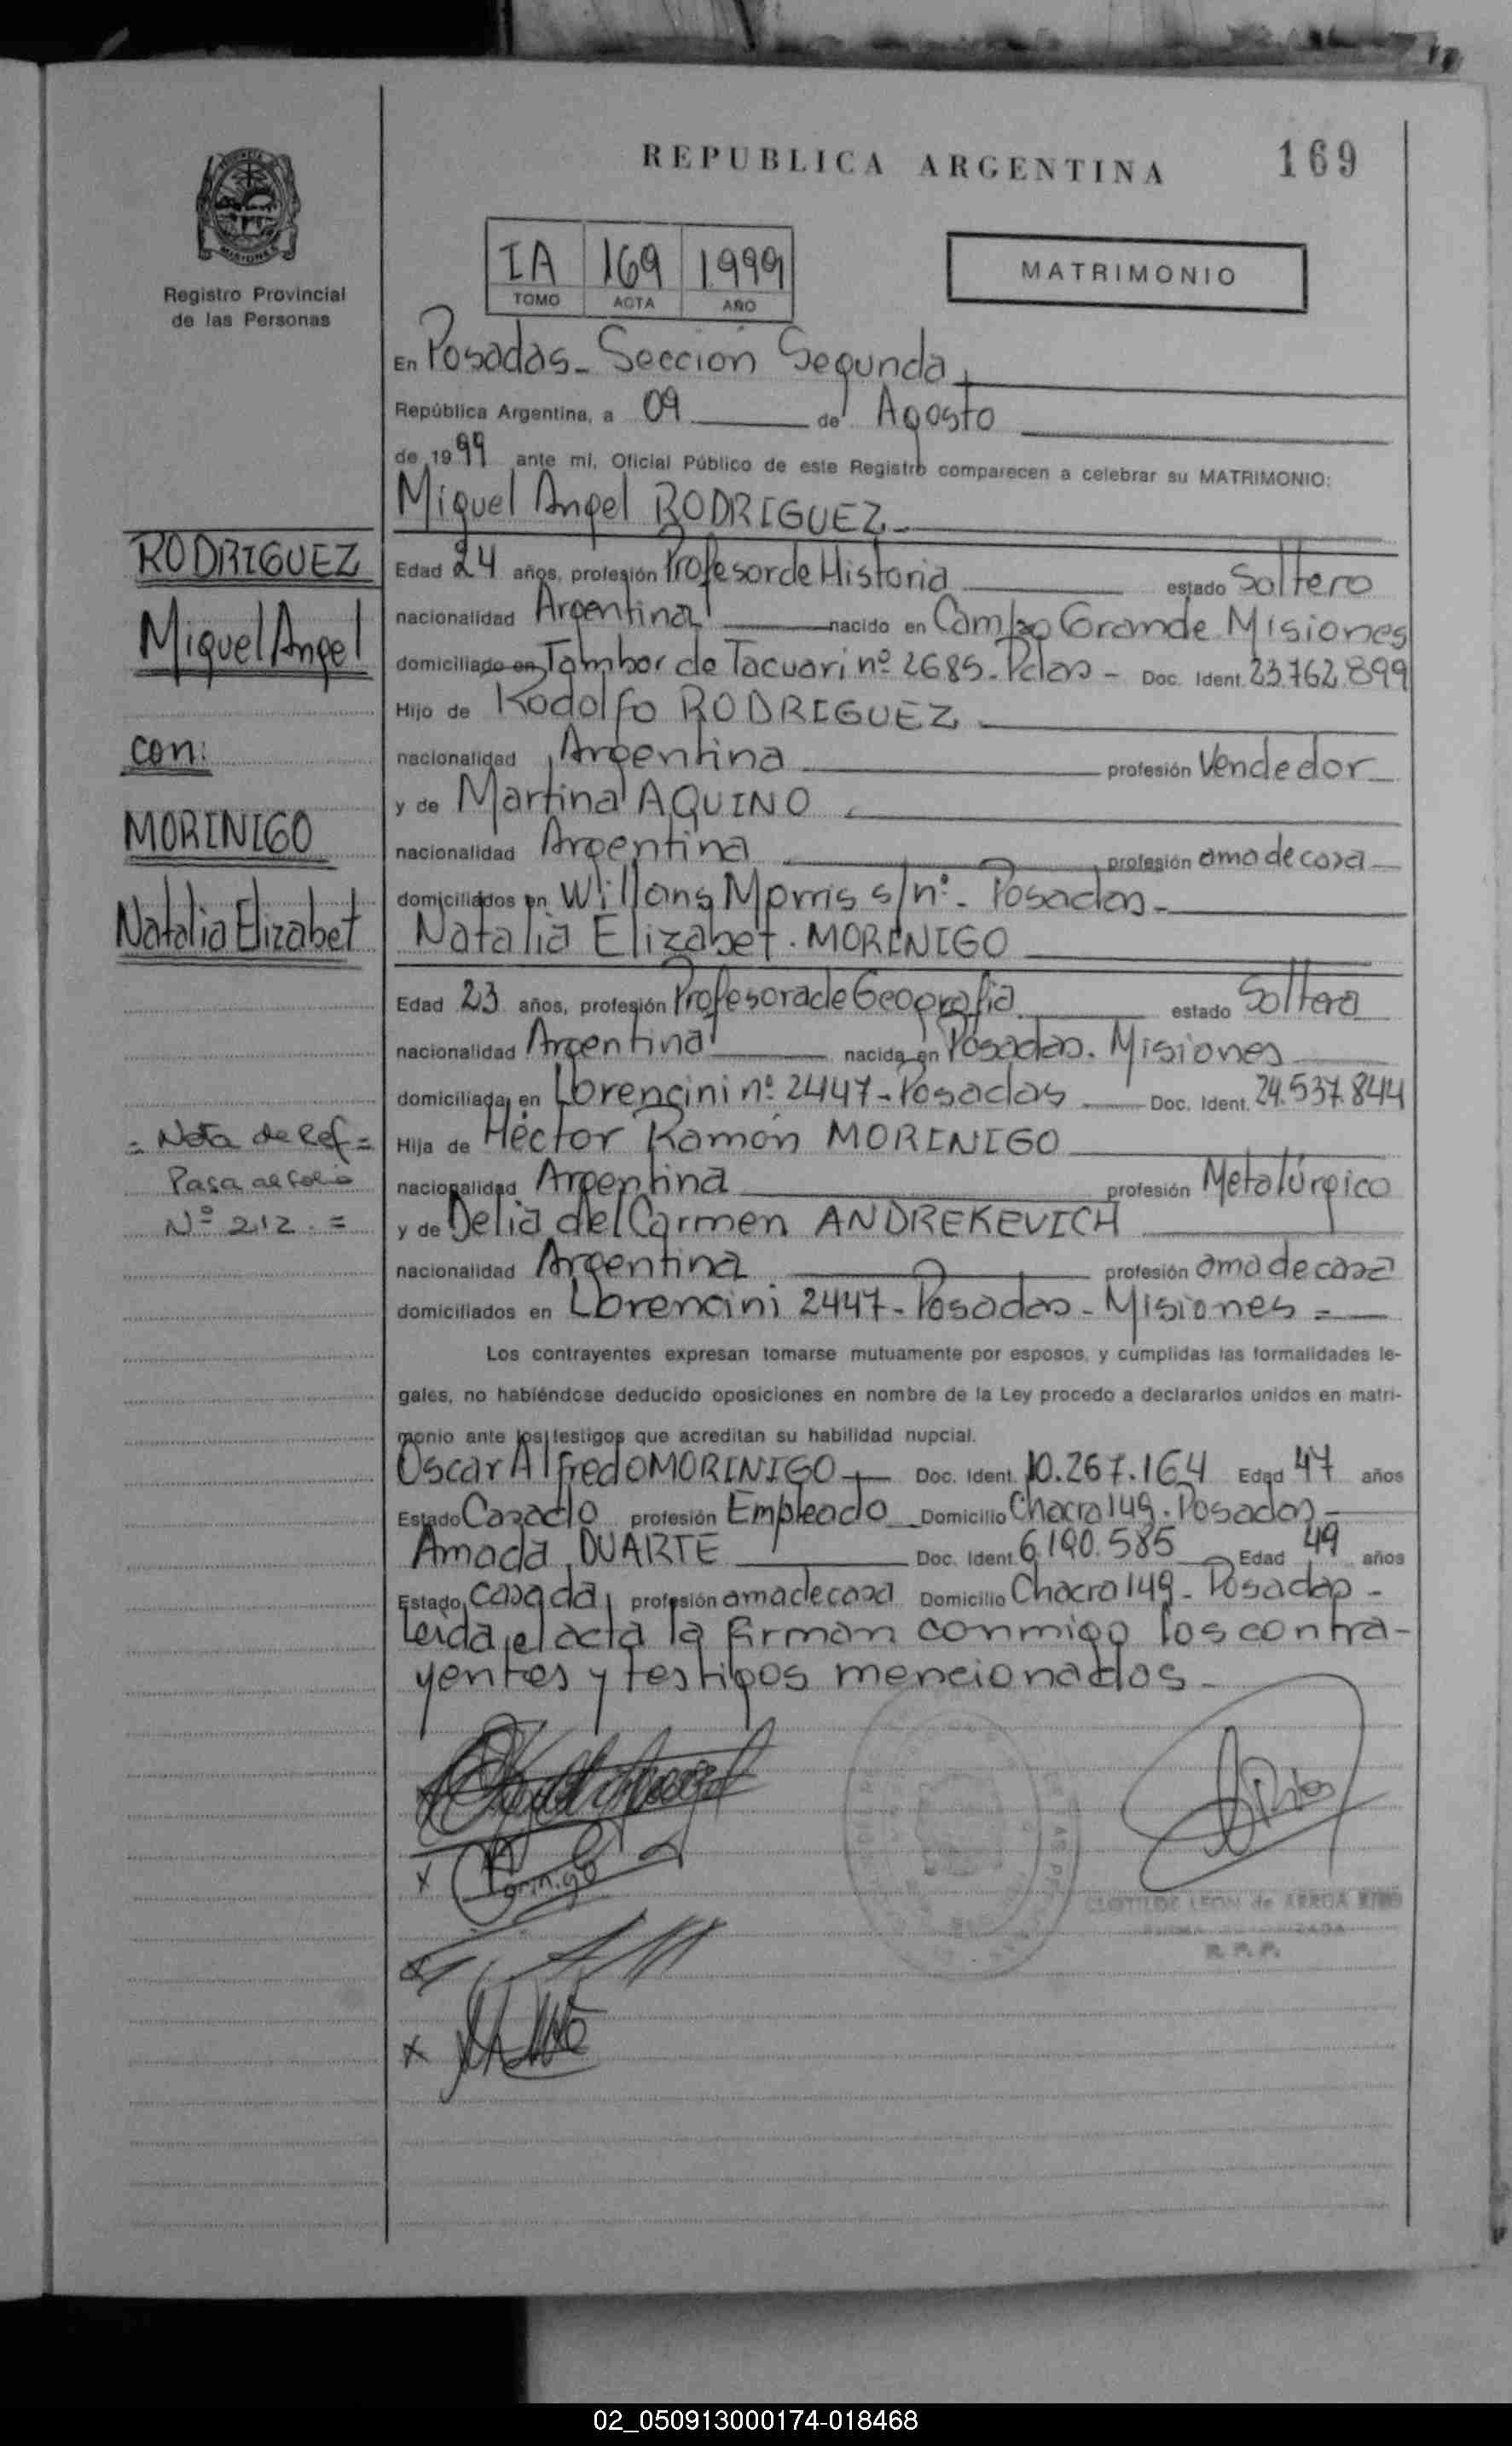 REPUBLICA ARGENTINA
169
Registro Provincial
de las Personas
IA 169 1.999
TOMO ACTA AÑO
MATRIMONIO
En Posadas - Sección Segunda
República Argentina, a 09 de Agosto
de 1999 ante mí, Oficial Público de este Registro comparecen a celebrar su MATRIMONIO:
Miguel Angel RODRIGUEZ
Edad 24 años, profesión Profesor de Historia estado Soltero
nacionalidad Argentina nacido en Campo Grande Misiones
domiciliado en Tambor de Tacuari nº 2685 - Pdas - Doc. Ident. 23.762.899
Hijo de Rodolfo RODRIGUEZ
nacionalidad Argentina profesión Vendedor
y de Martina AQUINO
nacionalidad Argentina profesión ama de casa
domiciliados en Willans Morris s/nº - Posadas -
Natalia Elizabet. MORINIGO
Edad 23 años, profesión Profesora de Geografia estado Soltera
nacionalidad Argentina nacida en Posadas. Misiones
domiciliada en Llorencini nº 2447 - Posadas Doc. Ident. 24.537.844
Hija de Héctor Ramón MORINIGO
nacionalidad Argentina profesión Metalúrgico
y de Delia del Carmen ANDREKEVICH
nacionalidad Argentina profesión ama de casa
domiciliados en Llorencini 2447 - Posadas - Misiones =
Los contrayentes expresan tomarse mutuamente por esposos, y cumplidas las formalidades le-
gales, no habiéndose deducido oposiciones en nombre de la Ley procedo a declararlos unidos en matri-
monio ante los testigos que acreditan su habilidad nupcial.
Oscar Alfredo MORINIGO Doc. Ident. 10.267.164 Edad 47 años
Estado Casado profesión Empleado Domicilio Chacra 149 - Posadas -
Amada DUARTE Doc. Ident. 6.190.585 Edad 49 años
Estado Casada profesión ama de casa Domicilio Chacra 149 - Posadas -
Leida el acta la firman conmigo los contra-
yentes y testigos mencionados -
RODRIGUEZ
Miguel Angel
con:
MORINIGO
Natalia Elizabet
= Nota de Ref =
Pasa al folio
Nº 212. =
CLOTILDE LEON de
R. P. P.
02_050913000174-018468